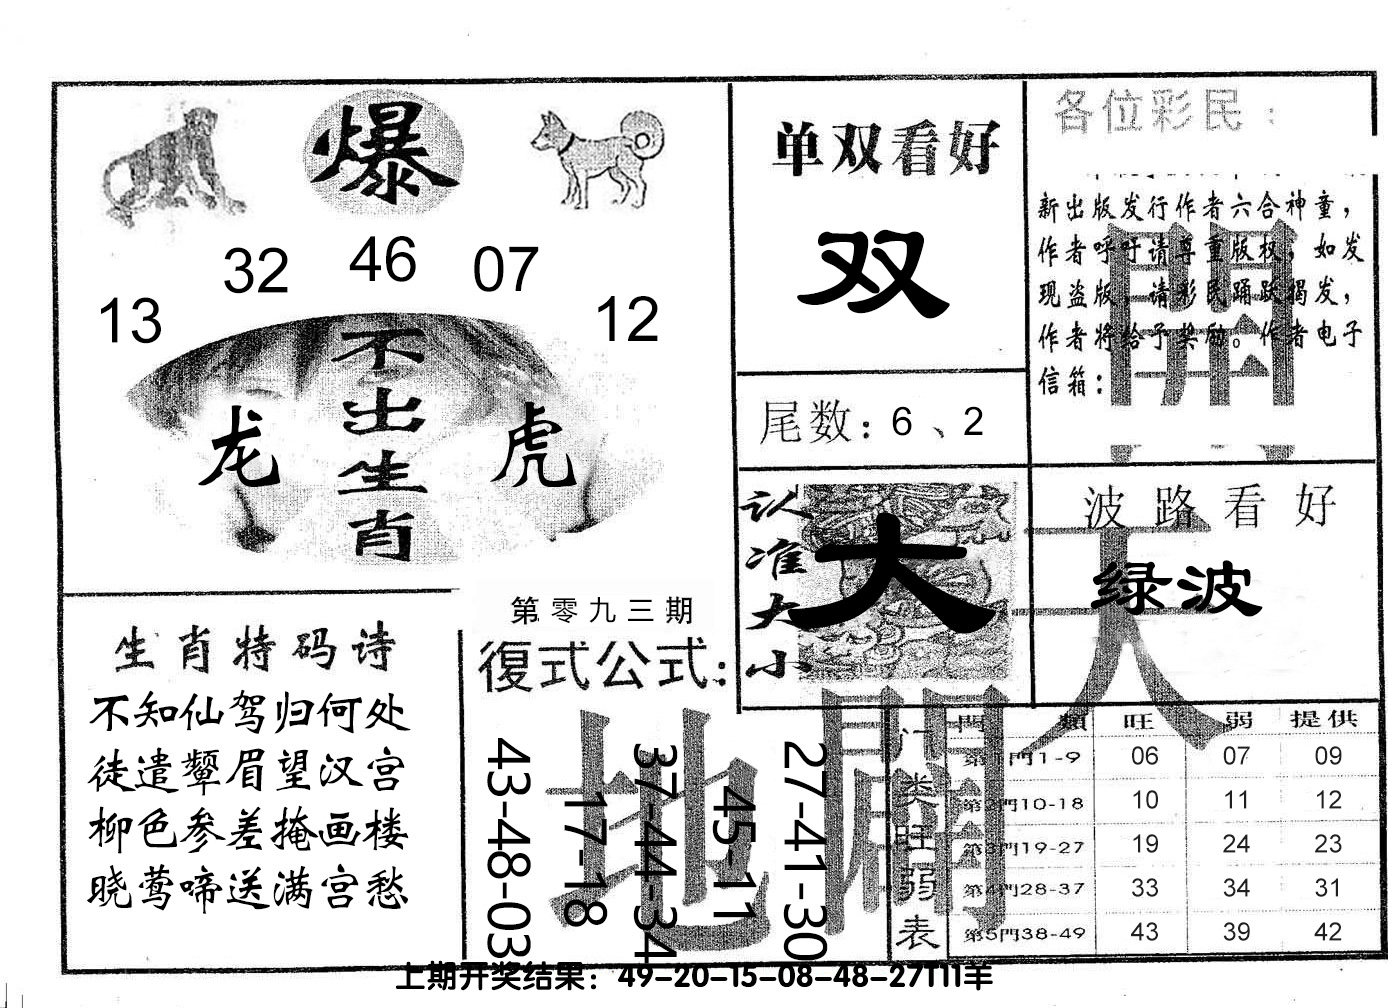 爆
13 32 46 07 12
不出生肖
龙 虎
单双看好
双
尾数：6、2
各位彩民：
新出版发行作者六合神童，
作者呼吁请尊重版权，如发
现盗版，请彩民踊跃揭发，
作者将给予奖励。作者电子
信箱：
認准大小
大
波路看好
绿波
天
地
開
生肖特码诗
不知仙驾归何处
徒遣颦眉望汉宫
柳色参差掩画楼
晓莺啼送满宫愁
第零九三期
復式公式：
43-48-03
17-18
37-44-34
45-11
27-41-30
门类旺弱表
門類 旺 弱 提供
第1門1-9 06 07 09
第2門10-18 10 11 12
第3門19-27 19 24 23
第4門28-37 33 34 31
第5門38-49 43 39 42
上期开奖结果：49-20-15-08-48-27T11羊